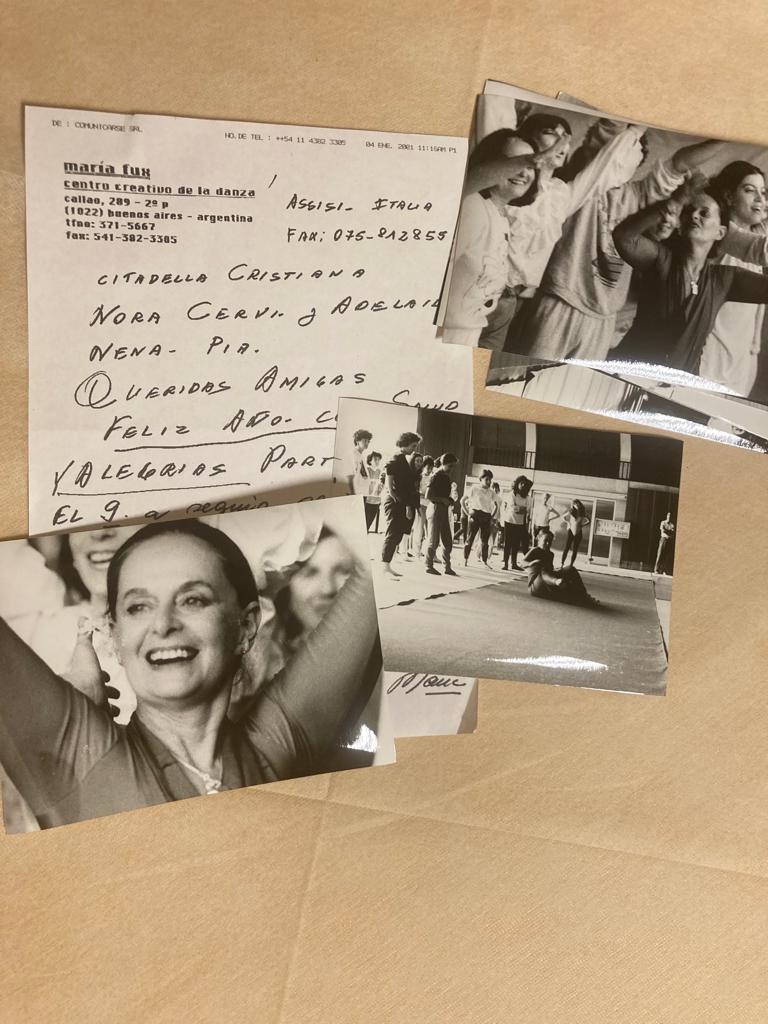 DE : COMUNICARSE SRL
NO.DE TEL : ++54 11 4382 3305
04 ENE. 2001 11:16AM P1
maría fux
centro creativo de la danza
callao, 289 - 2º p
(1022) buenos aires - argentina
tfno: 371-5667
fax: 541-382-3305
ASSISI- ITALIA
FAX: 075-812855
CITADELLA CRISTIANA
NORA CERVI. y ADELAID
NENA- PIA.
QUERIDAS AMIGAS
FELIZ AÑO- CO SALUD
Y ALEGRIAS PART
EL 9. a seguir